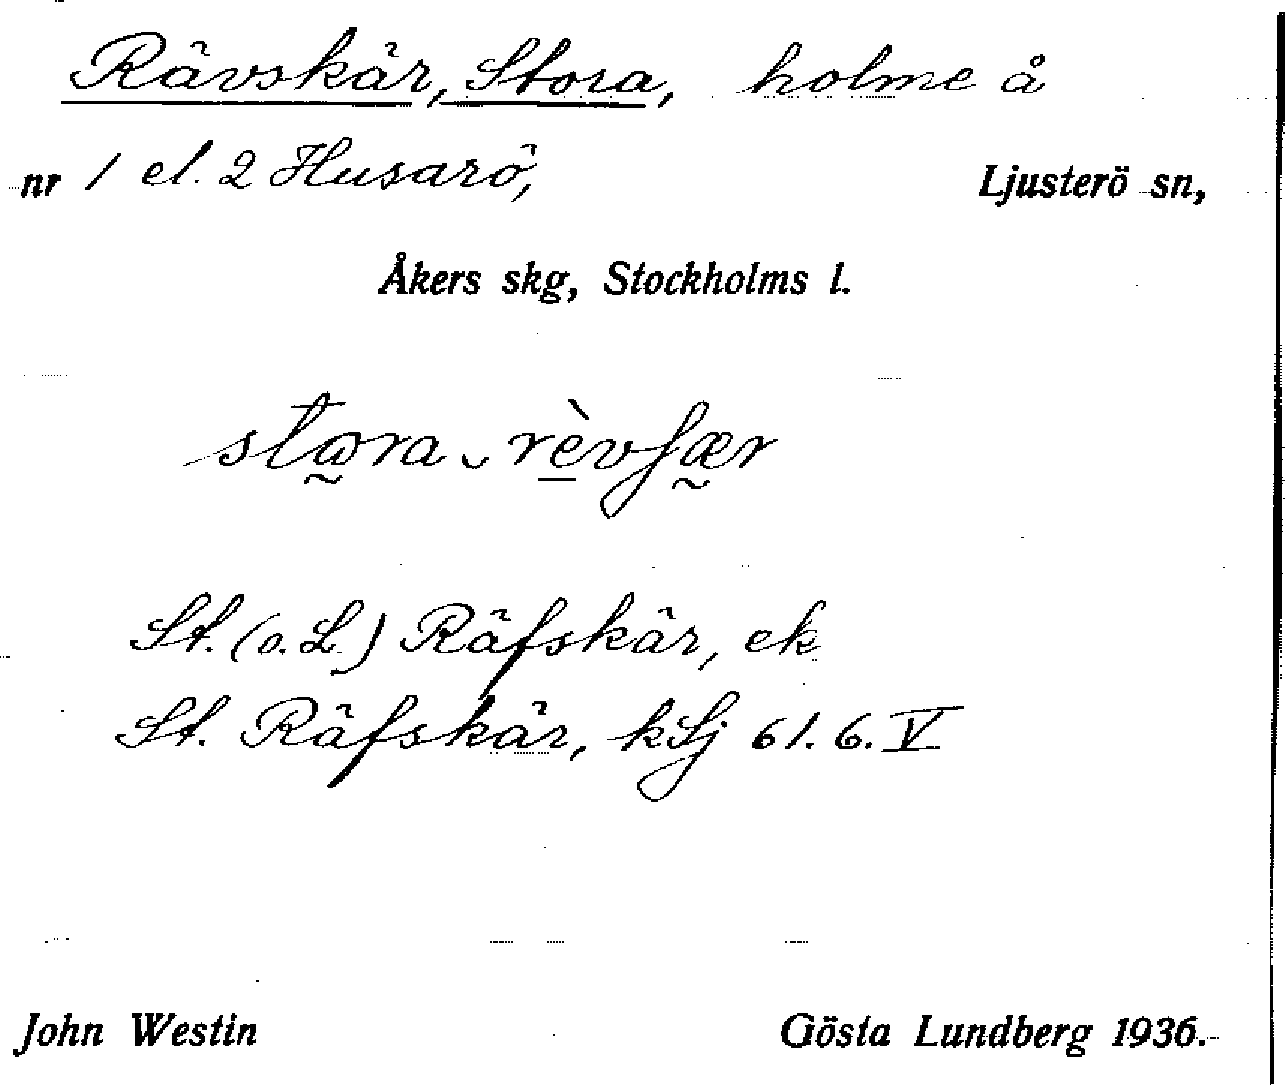 Rävskär, Stora, holme å
nr 1 el. 2 Husarö, Ljusterö sn,
Åkers skg, Stockholms l.
St. (o. L.) Räfskär, ek
St. Räfskär, kLj 61. 6. V
John Westin Gösta Lundberg 1936.